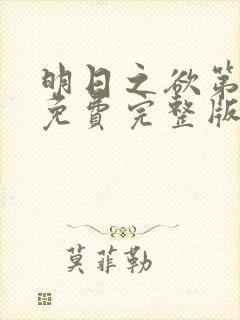 明日之欲第
免费完整版
莫菲勒